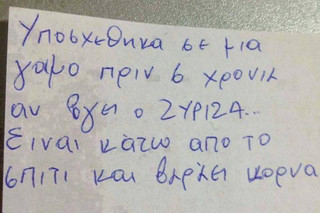 Υποσχεθηκα σε μια
γαμο πριν 6 χρονια
αν βγει ο ΣΥΡΙΖΑ...
Ειναι κατω απο το
σπιτι και βαραει κορνα